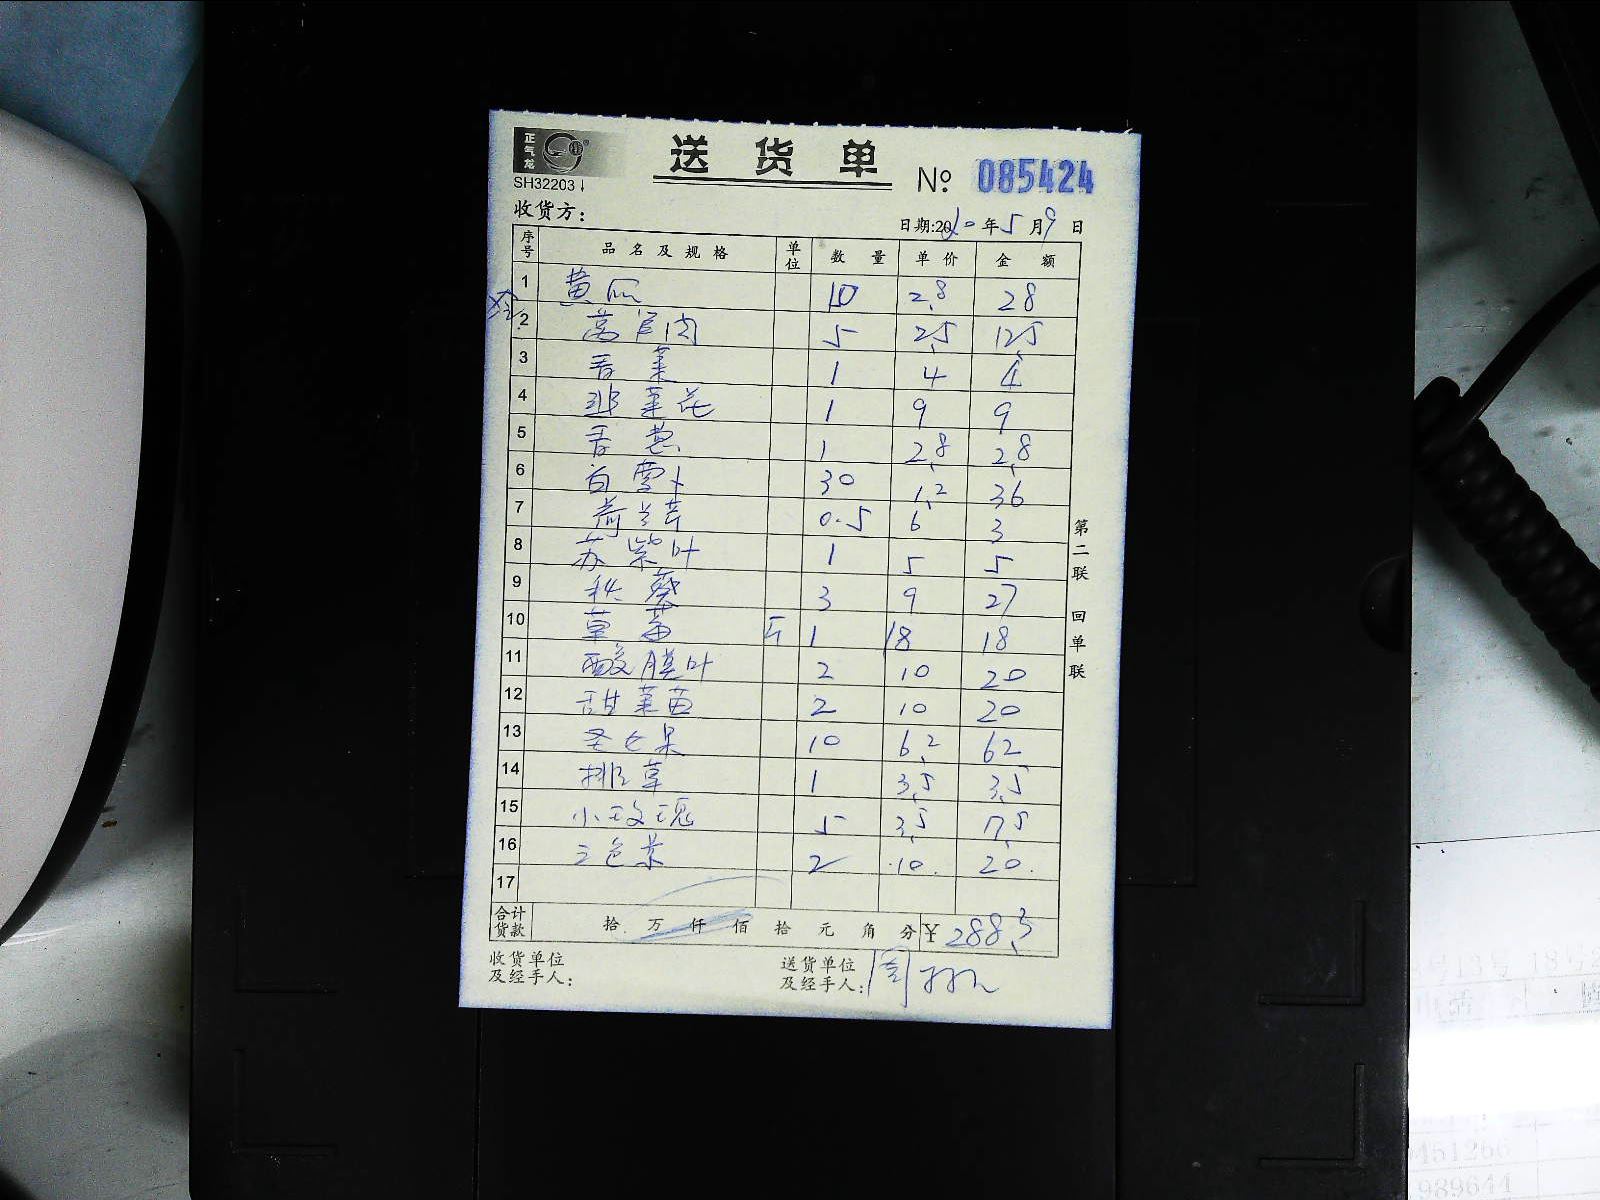 正气龙
送货单
№ 085424
SH32203
收货方：
日期:2020年5月9日
序号 品名及规格 单位 数量 单价 金额
1 黄瓜 10 2.8 28
2 莴笋肉 5 2.5 12.5
3 香菜 1 4 4
4 西兰花 1 9 9
5 香葱 1 2.8 2.8
6 白萝卜 30 1.2 36
7 荷兰芹 0.5 6 3
8 苏紫叶 1 5 5
9 秋葵 3 9 27
10 草莓 斤 1 18 18
11 酸膜叶 2 10 20
12 甜菜苗 2 10 20
13 圣女果 10 6.2 62
14 排草 1 3.5 3.5
15 小玫瑰 5 3.5 17.5
16 三色堇 2 10 20
17
合计货款 拾 万 仟 佰 拾 元 角 分 ¥ 288.3
收货单位及经手人：
送货单位及经手人：
第二联 回单联
451266
989644